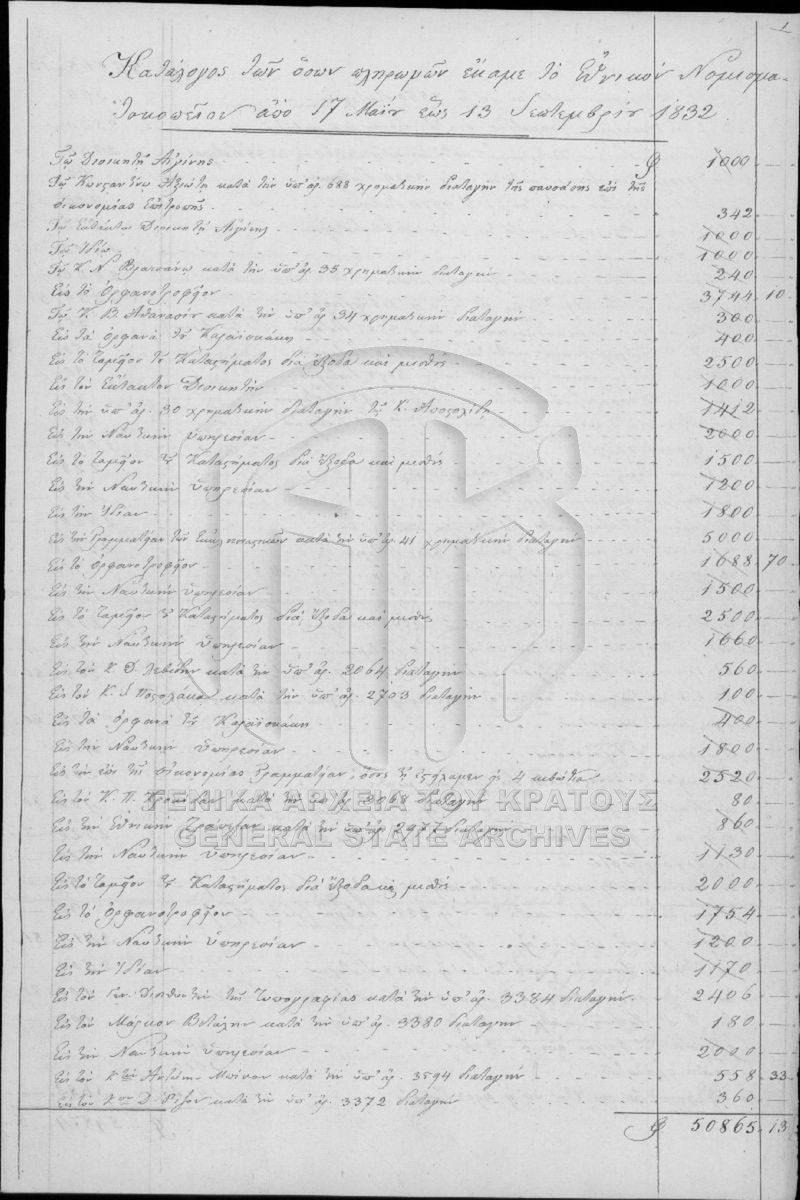 1
Κατάλογος τῶν ὅσων πληρωμῶν ἔκαμε τὸ Ἐθνικὸν Νομισμα-
τοκοπεῖον ἀπὸ 17 Μαΐου ἕως 13 Σεπτεμβρίου 1832
Τῷ Διοικητῇ Αἰγίνης 1000
Τῷ Κωνσταντίνῳ Ἀξιώτῃ κατὰ τὴν ὑπ' ἀρ. 688 χρηματικὴν διαταγὴν τῆς παυσάσης ἐπὶ τῆς
Οἰκονομίας Ἐπιτροπῆς 342
Τῷ Ἐκτάκτῳ Διοικητῇ Αἰγίνης 1000
Τῷ Ἰδίῳ 1000
Τῷ Κ. Ν. κατὰ τὴν ὑπ' ἀρ. 35 χρηματικὴν διαταγὴν 240
Εἰς τὸ Ὀρφανοτροφεῖον 3744 10
Τῷ Κ. Β. Ἀθανασίου κατὰ τὴν ὑπ' ἀρ. 34 χρηματικὴν διαταγὴν 300
Εἰς τὰ ὀρφανὰ τοῦ Καραϊσκάκη 400
Εἰς τὸ Ταμεῖον τοῦ Καταστήματος διὰ ἔξοδα καὶ μισθούς 2500
Εἰς τὸν Ἔκτακτον Διοικητὴν 1000
Εἰς τὴν ὑπ' ἀρ. 30 χρηματικὴν διαταγὴν τοῦ Κ. Ἀποστολίδη 1412
Εἰς τὴν Ναυτικὴν ὑπηρεσίαν 2000
Εἰς τὸ Ταμεῖον τοῦ Καταστήματος διὰ ἔξοδα καὶ μισθούς 1500
Εἰς τὴν Ναυτικὴν ὑπηρεσίαν 1200
Εἰς τὴν Ἰδίαν 1800
Εἰς τὴν Γραμματείαν τῶν Ἐκκλησιαστικῶν κατὰ τὴν ὑπ' ἀρ. 41 χρηματικὴν διαταγὴν 5000
Εἰς τὸ Ὀρφανοτροφεῖον 1688 70
Εἰς τὴν Ναυτικὴν ὑπηρεσίαν 1500
Εἰς τὸ Ταμεῖον τοῦ Καταστήματος διὰ ἔξοδα καὶ μισθούς 2500
Εἰς τὴν Ναυτικὴν ὑπηρεσίαν 1660
Εἰς τὸν Κ. Δ. Λεβίδην κατὰ τὴν ὑπ' ἀρ. 2064 διαταγὴν 560
Εἰς τὸν Κ. κατὰ τὴν ὑπ' ἀρ. 2703 διαταγὴν 100
Εἰς τὰ ὀρφανὰ τοῦ Καραϊσκάκη 400
Εἰς τὴν Ναυτικὴν ὑπηρεσίαν 1800
Εἰς τὴν ἐπὶ τῆς Οἰκονομίας Γραμματείαν, 4 κιβώτια 2520
Εἰς τὸν Κ. Π. κατὰ τὴν ὑπ' ἀρ. διαταγὴν 80
ΓΕΝΙΚΑ ΑΡΧΕΙΑ ΤΟΥ ΚΡΑΤΟΥΣ
Εἰς τὴν Ἐθνικὴν Τράπεζαν κατὰ τὴν ὑπ' ἀρ. 2977 διαταγὴν 860
GENERAL STATE ARCHIVES
Εἰς τὴν Ναυτικὴν ὑπηρεσίαν 1130
Εἰς τὸ Ταμεῖον τοῦ Καταστήματος διὰ ἔξοδα καὶ μισθούς 2000
Εἰς τὸ Ὀρφανοτροφεῖον 1754
Εἰς τὴν Ναυτικὴν ὑπηρεσίαν 1200
Εἰς τὴν Ἰδίαν 1170
Εἰς τὸν Γεν. Διευθυντὴν τῆς Τυπογραφίας κατὰ τὴν ὑπ' ἀρ. 3384 διαταγὴν 2406
Εἰς τὸν Μάρκον κατὰ τὴν ὑπ' ἀρ. 3380 διαταγὴν 180
Εἰς τὴν Ναυτικὴν ὑπηρεσίαν 2000
Εἰς τὸν Κ. Ἀντών. κατὰ τὴν ὑπ' ἀρ. 3594 διαταγὴν 558 33
Εἰς τὸν Κον Δ. κατὰ τὴν ὑπ' ἀρ. 3372 διαταγὴν 360
50865 13